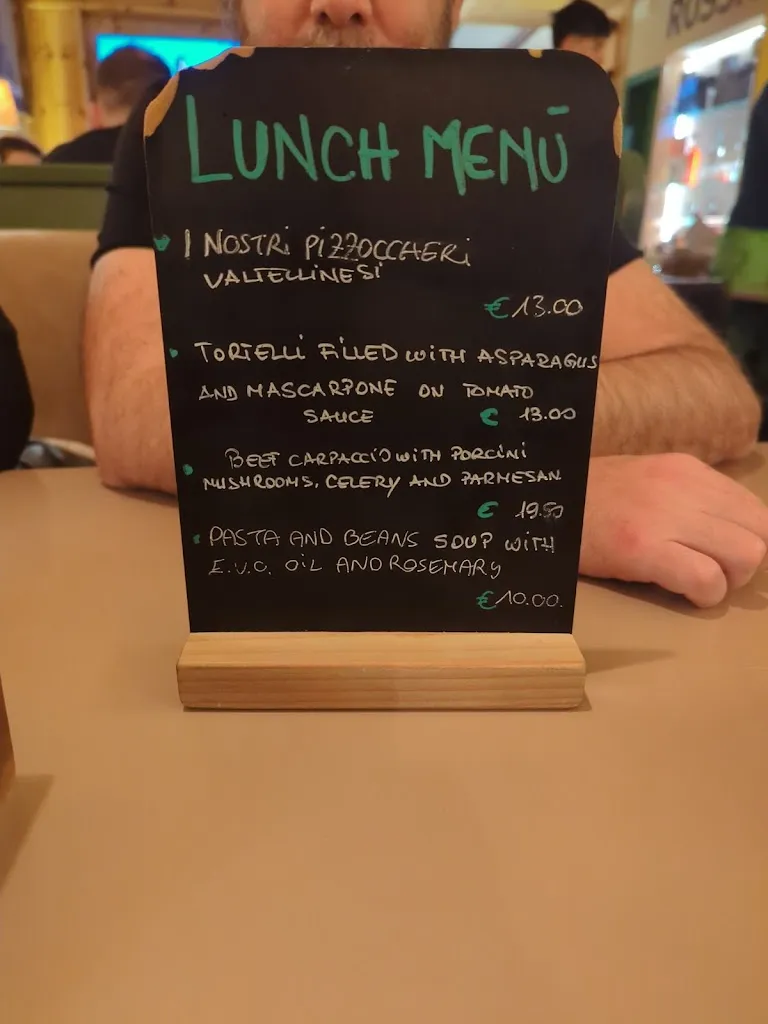 LUNCH MENÙ
I NOSTRI PIZZOCCHERI
VALTELLINESI
€ 13.00
TORTELLI FILLED WITH ASPARAGUS
AND MASCARPONE ON TOMATO
SAUCE € 13.00
BEEF CARPACCIO WITH PORCINI
MUSHROOMS, CELERY AND PARMESAN
€ 19.50
PASTA AND BEANS SOUP WITH
E.V.O. OIL AND ROSEMARY
€ 10.00.